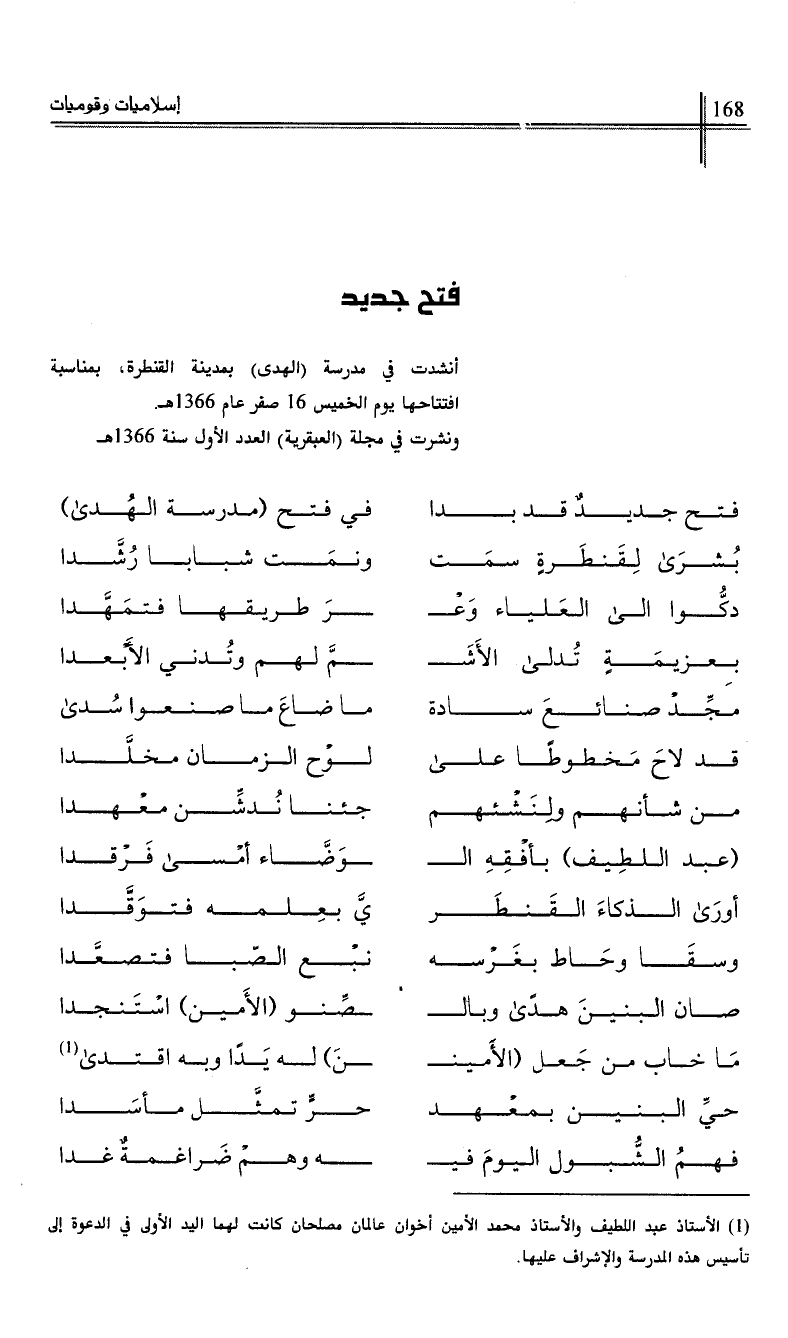 168
إسلاميات وقوميات
فتح جديد
أنشدت في مدرسة (الهدى) بمدينة القنطرة، بمناسبة
افتتاحها يوم الخميس 16 صفر عام 1366هـ.
ونشرت في مجلة (العبقرية) العدد الأول سنة 1366هـ
فتح جديدٌ قد بدا في فتح (مدرسة الهُدىٰ)
بُشرَىٰ لِقَنطَرةٍ سمَت ونمَت شبابا رُشَّدا
دكُّوا الىٰ العَلياء وَعْـ ـرَ طريقها فتمَهَّدا
بعزيمَةٍ تُدلىٰ الأشَـ ـمَّ لهم وتُدني الأبعدا
مجِّدْ صنائعَ سادة ما ضاعَ ما صنعوا سُدىٰ
قد لاحَ مَخطوطًا علىٰ لوْح الزمان مخلَّدا
من شأنهم ولِنَشْئهم جئنا نُدشِّن معْهدا
(عبد اللطيف) بأفْقِهِ الـ ـوَضَّاء أمْسىٰ فَرْقدا
أورَىٰ الذكاءَ القَنطَر يَّ بعِلمه فتوَقَّدا
وسقَا وحَاط بغَرْسه نبْع الصّبا فتصعَّدا
صان البنينَ هدًىٰ وبالـ ـصِّنو (الأمين) اسْتَنجدا
مَا خاب من جَعل (الأمينـ ـنَ) له يَدًا وبه اقتدىٰ(1)
حيِّ البنين بمعْهد حرٍّ تمثَّل مأسَدا
فهمُ الشُّبول اليومَ فيـ ـه وهمْ ضَراغمةٌ غدا
(1) الأستاذ عبد اللطيف والأستاذ محمد الأمين أخوان عالمان مصلحان كانت لهما اليد الأولى في الدعوة إلى
تأسيس هذه المدرسة والإشراف عليها.